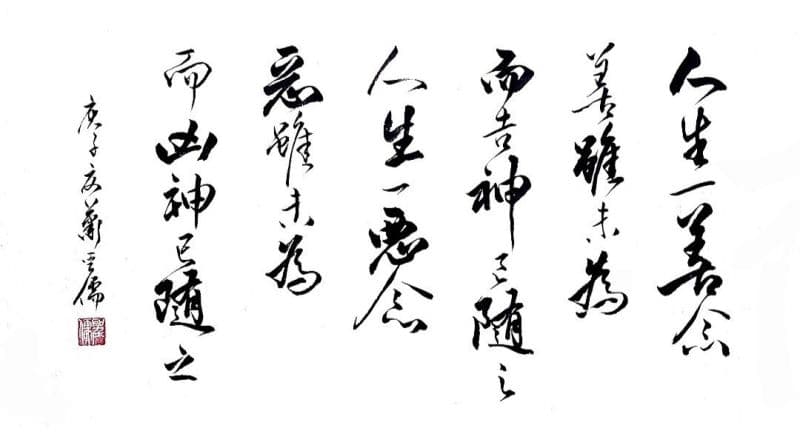 人生一善念
善雖未為
而吉神已随之
人生一悪念
惡雖未為
而凶神已随之
庚子夏蕭儒